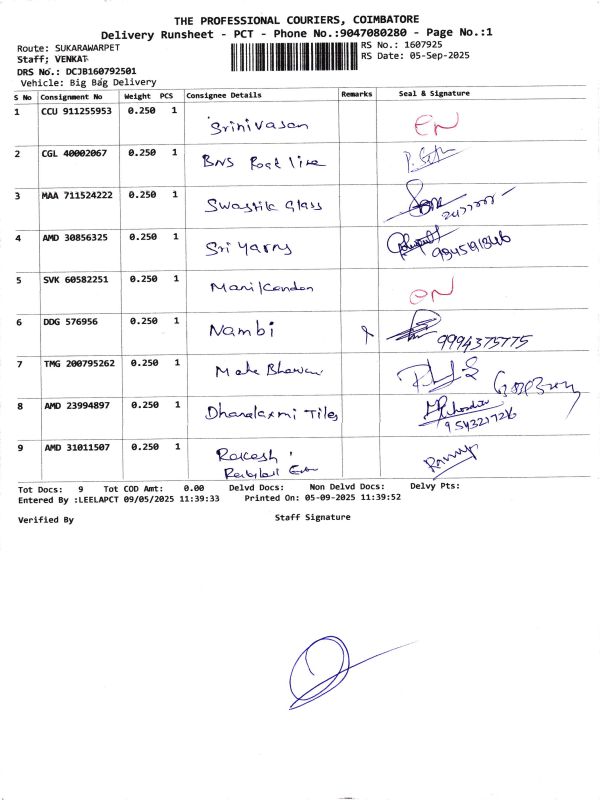 THE PROFESSIONAL COURIERS, COIMBATORE
Delivery Runsheet - PCT - Phone No.:9047080280 - Page No.:1
Route: SUKARAWARPET RS No.: 1607925
Staff; VENKAT RS Date: 05-Sep-2025
DRS No.: DCJB160792501
Vehicle: Big Bag Delivery
S No Consignment No Weight PCS Consignee Details Remarks Seal & Signature
1 CCU 911255953 0.250 1 Srinivasan
2 CGL 40002067 0.250 1 BNS Road line
3 MAA 711524222 0.250 1 Swastik Glass
4 AMD 30856325 0.250 1 Sri Yarns
5 SVK 60582251 0.250 1 Manikandan
6 DDG 576956 0.250 1 Nambi 9994375775
7 TMG 200795262 0.250 1
8 AMD 23994897 0.250 1 Dhanalaxmi Tiles
9 AMD 31011507 0.250 1 Rakesh
Tot Docs: 9 Tot COD Amt: 0.00 Delvd Docs: Non Delvd Docs: Delvy Pts:
Entered By :LEELAPCT 09/05/2025 11:39:33 Printed On: 05-09-2025 11:39:52
Verified By Staff Signature